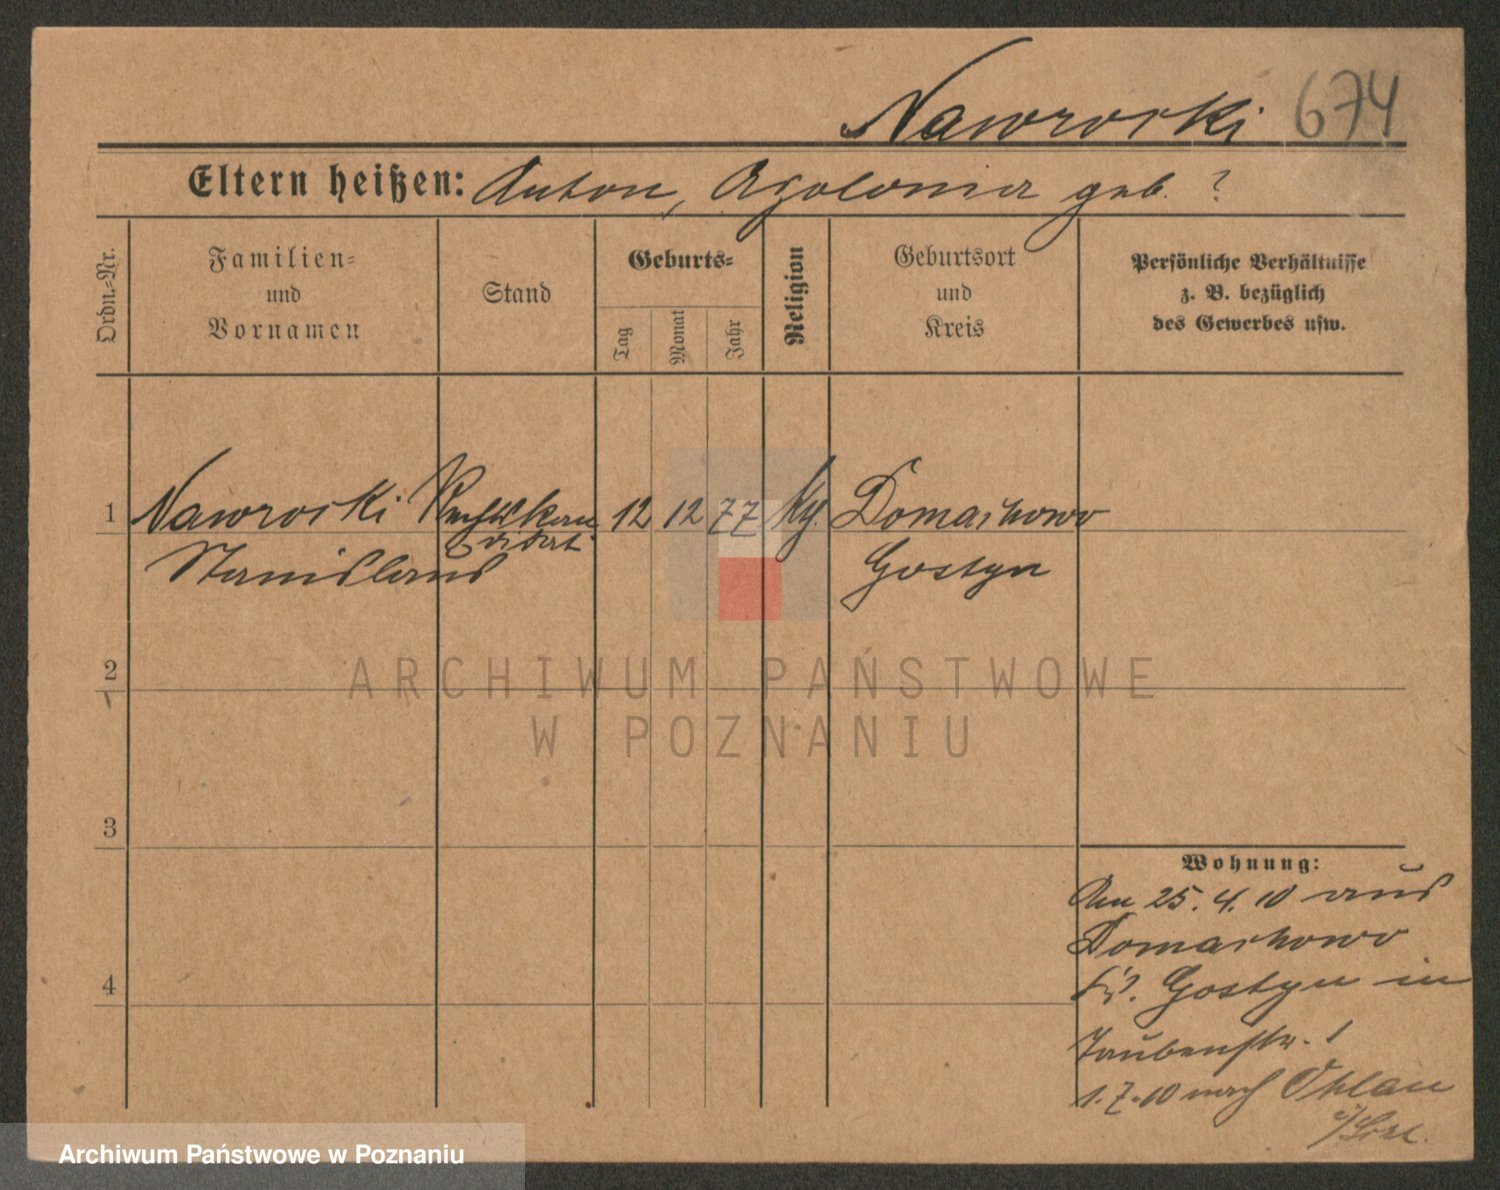 Nawrocki 674
Eltern heißen: Anton, Apolonia geb. ?
Ordn.-Nr.
Familien-
und
Vornamen
Stand
Geburts-
Tag
Monat
Jahr
Religion
Geburtsort
und
Kreis
Persönliche Verhältnisse
z. B. bezüglich
des Gewerbes usw.
1 Nawrocki 12 12 77 Domachowo
Stanislaus Gostyn
2
3
4
Wohnung:
Am 25.4.10 aus
Domachowo
Gostyn in
Taubenstr. 1
1.7.10 nach Ohlau
ARCHIWUM PAŃSTWOWE
W POZNANIU
Archiwum Państwowe w Poznaniu